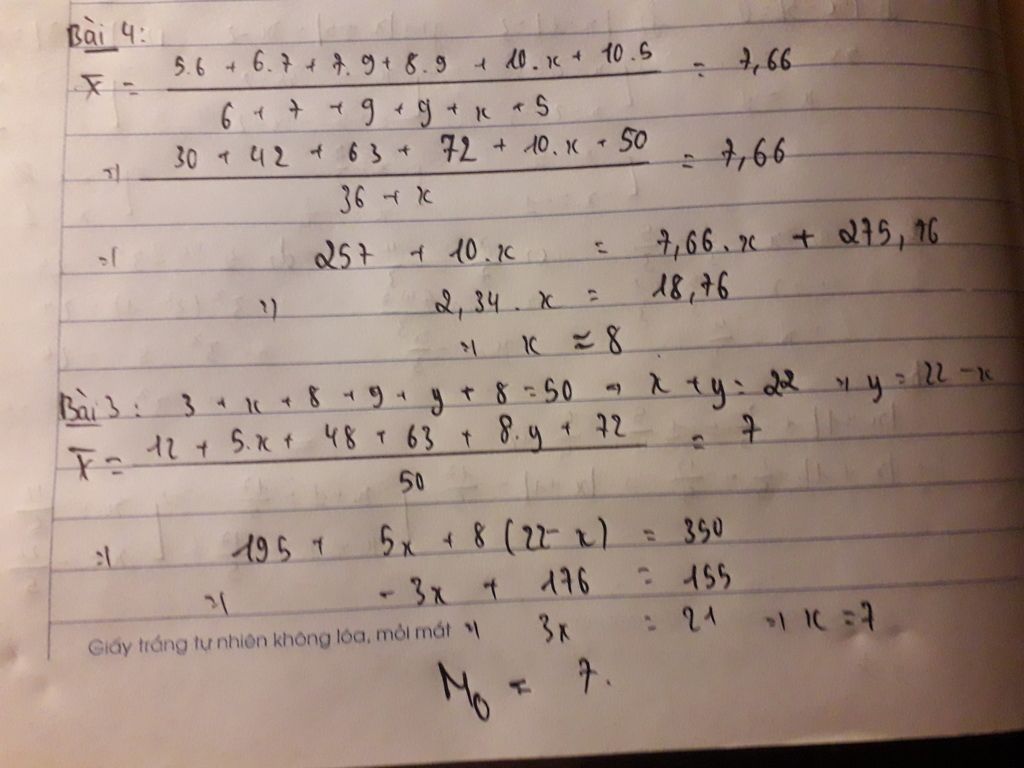 Bài 4:
X̄ = (5.6 + 6.7 + 7.9 + 8.9 + 10.x + 10.5) / (6 + 7 + 9 + 9 + x + 5) = 7,66
=> (30 + 42 + 63 + 72 + 10.x + 50) / (36 + x) = 7,66
=> 257 + 10.x = 7,66.x + 275,76
=> 2,34.x = 18,76
=> x ≈ 8
Bài 3: 3 + x + 8 + 9 + y + 8 = 50 => x + y = 22 => y = 22 - x
X̄ = (12 + 5.x + 48 + 63 + 8.y + 72) / 50 = 7
=> 195 + 5x + 8(22 - x) = 350
=> - 3x + 176 = 155
Giấy trắng tự nhiên không lóa, mỏi mắt => 3x = 21 => x = 7
M₀ = 7.